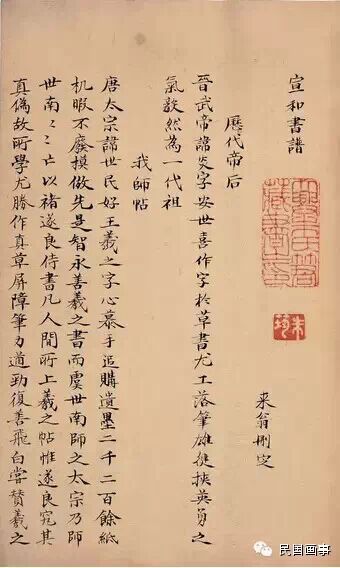 宣和書譜
来翁刪定
歷代帝后
晉武帝諱炎字安世喜作字於草書尤工落筆雄健挾英勇之
氣毅然為一代祖
我師帖
唐太宗諱世民好王羲之字心慕手追購遺墨二千二百餘紙
机暇不廢摸倣先是智永善羲之書而虞世南師之太宗乃師
世南〻〻亡以褚遂良侍書凡人間所上羲之帖惟遂良究其
真偽故所學尤勝作真草屏障筆力遒勁復善飛白嘗贊羲之
民国画事